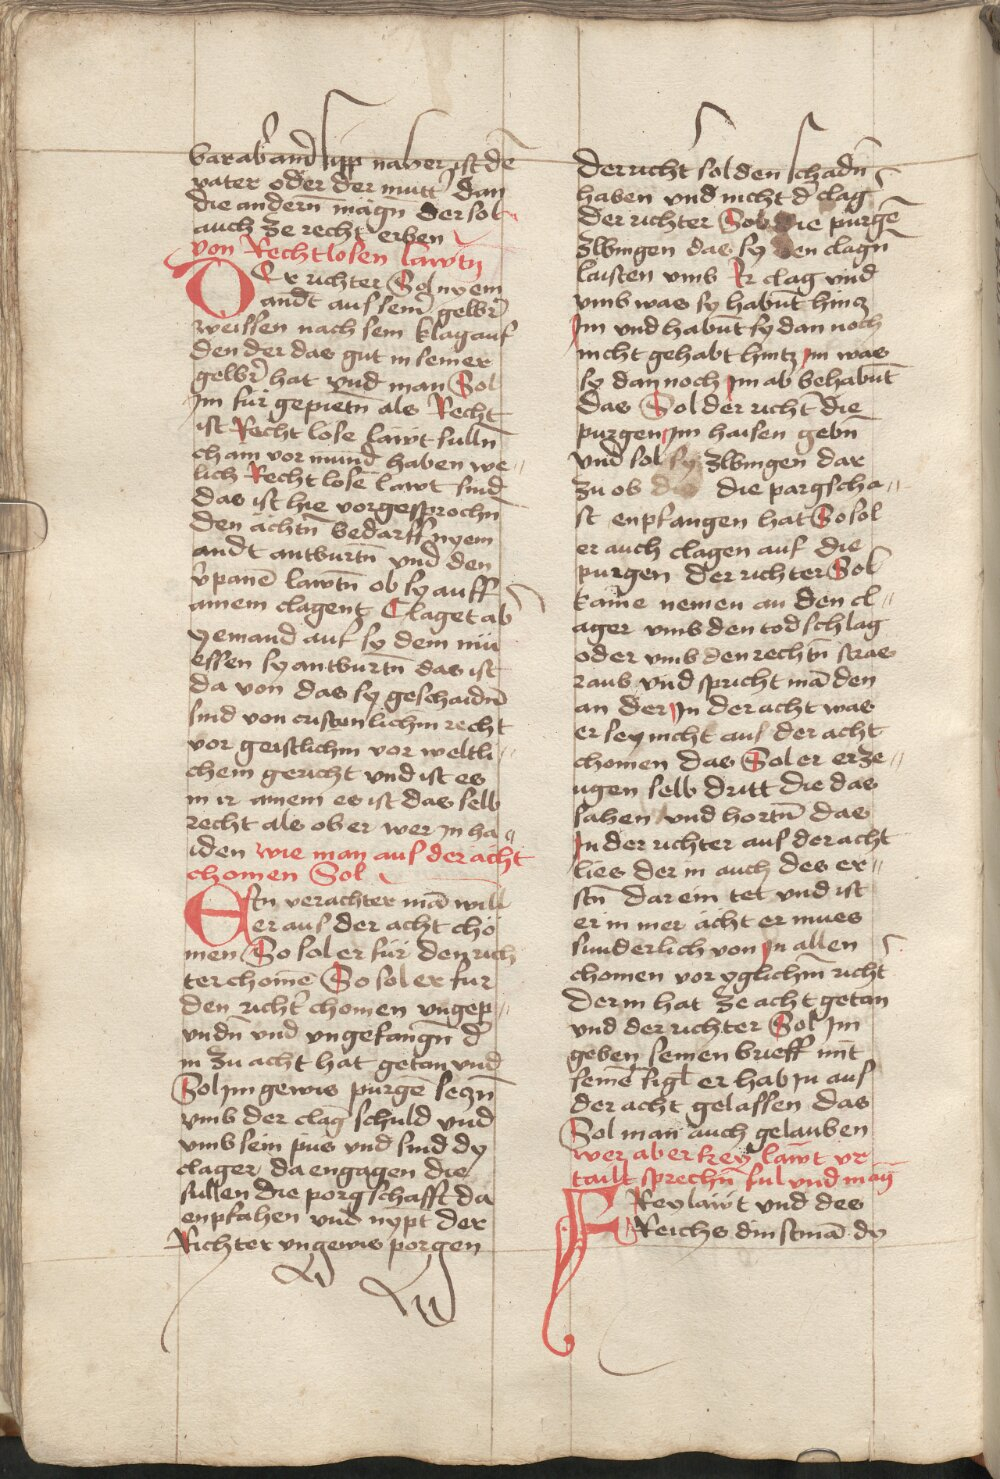 barab and sipp naher ist dē
vater oder der mutt dan
die andern magn der sol
auch ze recht erben
von Rechtlosen lawtn
DEr richter Sol nyem
andt aus sein gelbr
weissen nach sein klag auf
den der das gut in seiner
gelbr hat vnd man Sol
Im für gepietn als Recht
ist Recht lose lawt sulln
chain vor mund haben we„
lich Recht lose lawt sind
das ist hie vorgesprochn
den achtn bedarff nyem
andt antwurtn vnd den
v̾panē lawtn ob sy auff
ainem clagent Claget ab
yemand auf sy dem mü
essen sy antwurtn das ist
da von das sy geschaidn
sind von cristenlichm recht
vor geistlichm vor weltli„
chem gericht vnd ist es
in ir ainem es ist das selb
recht als ob er wer in ha„
iden wie man aus der acht
chomen Sol
Ein verachter mā will
er aus der acht cho
men So sol er für den rich
ter chomē So sol er fur
den richt chomen vngep„
undn vnd vngefangn d
in zu acht hat getan vnd
Sol im gewis purgē seczn
vmb der clag schuld vnd
vmb sein pus vnd sind dy
clager da engagen die
sullen die porgschafft da
enpfahen vnd nypt der
Richter vngewis porgen
der richt sol den schadn
haben vnd nicht d clag
der richter Sol die purgē
zwingen das sy den clagn
laisten vmb Ir clag vnd
vmb was sy habnt hincz
Im vnd habnt sy dan noch
nicht gehabt hintz im was
sy dan noch im ab behabnt
das Sol der richt die
purgen Im haisen gebn
vnd sol sy zwingen dar
zu ob die die pargscha„
ft enpfangen hat So sol
er auch clagen auf die
purgen der richter Sol
kaine nemen an den cl„
ager vmb den todschlag
oder vmb den rechtn stras
raub vnd spricht mā den
an der In der acht was
er sey nicht aus der acht
chomen das Sol er erze„
ugen selb dritt die das
sahen vnd hortn das
In der richter aus der acht
lies der in auch des er„
stn darein tet vnd ist
er in mer acht er mues
sunderlich von In allen
chomen vor yglichm richt
der in hat ze acht getan
vnd der richter Sol Im
geben seinen brieff mit
seinē sigl er hab In aus
der acht gelassen das
Sol man auch gelauben
wer aber frey lawt vr
tailt sprechn sul vnd mag
FRey lawt vnd des
Reichs dinstmā dy